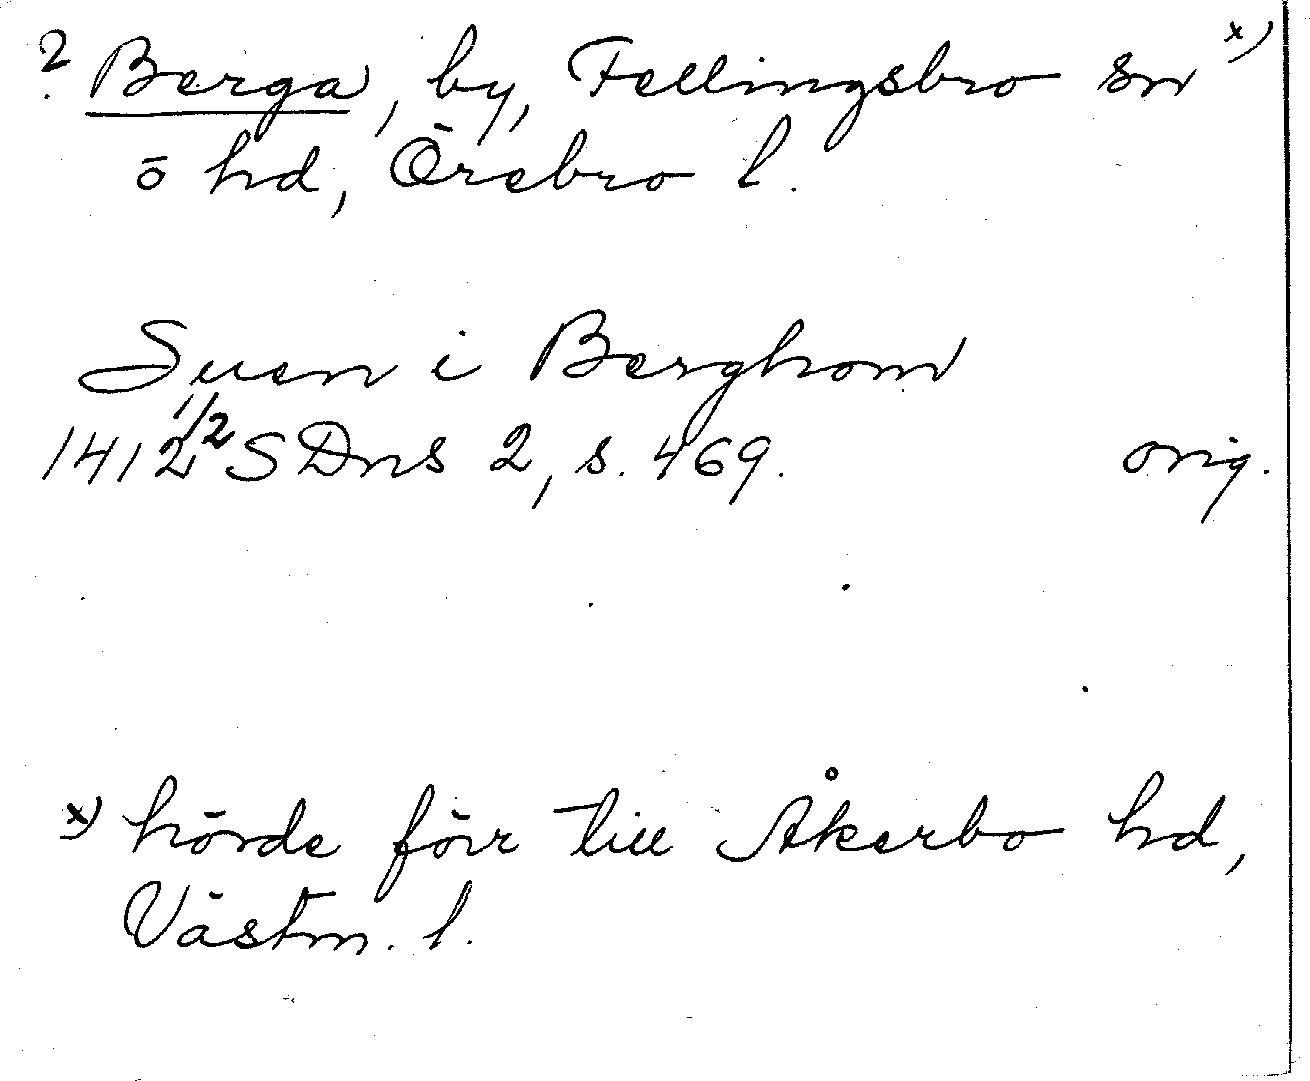 ? Berga, by, Fellingsbro sn x)
ö hd, Örebro l.
Suen i Berghom
1412 1/2 SDns 2, s. 469. orig.
x) hörde förr till Åkerbo hd,
Västm. l.